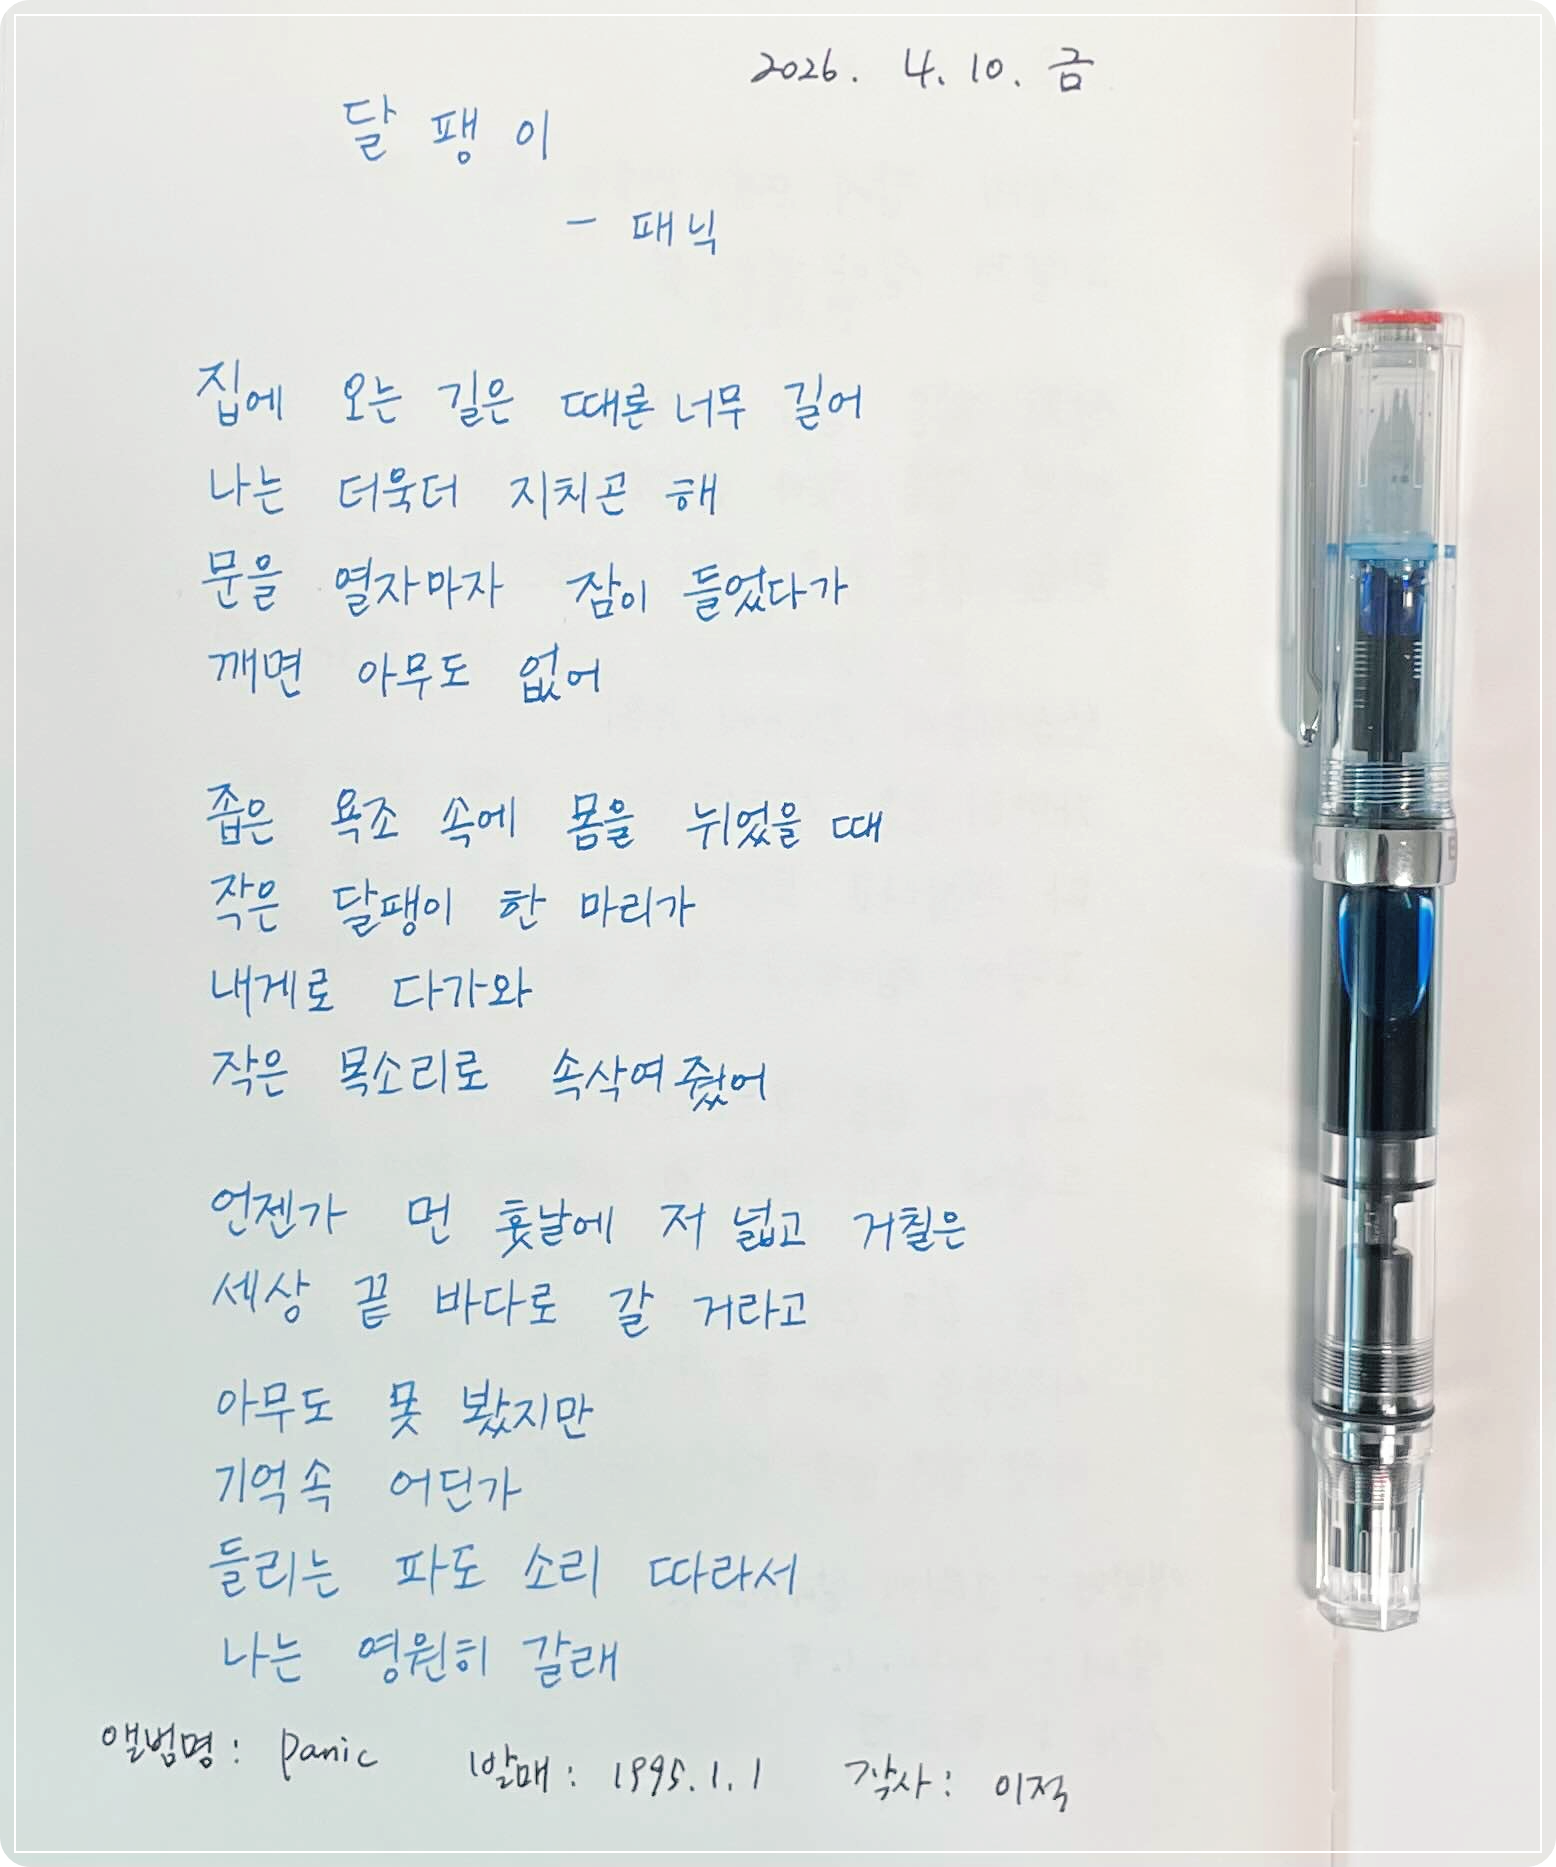 2026. 4. 10. 금
달 팽 이
- 패닉
집에 오는 길은 때론 너무 길어
나는 더욱더 지치곤 해
문을 열자마자 잠이 들었다가
깨면 아무도 없어
좁은 욕조 속에 몸을 뉘었을 때
작은 달팽이 한 마리가
내게로 다가와
작은 목소리로 속삭여줬어
언젠가 먼 훗날에 저 넓고 거칠은
세상 끝 바다로 갈 거라고
아무도 못 봤지만
기억속 어딘가
들리는 파도 소리 따라서
나는 영원히 갈래
앨범명 : panic 발매 : 1995.1.1 작사 : 이적